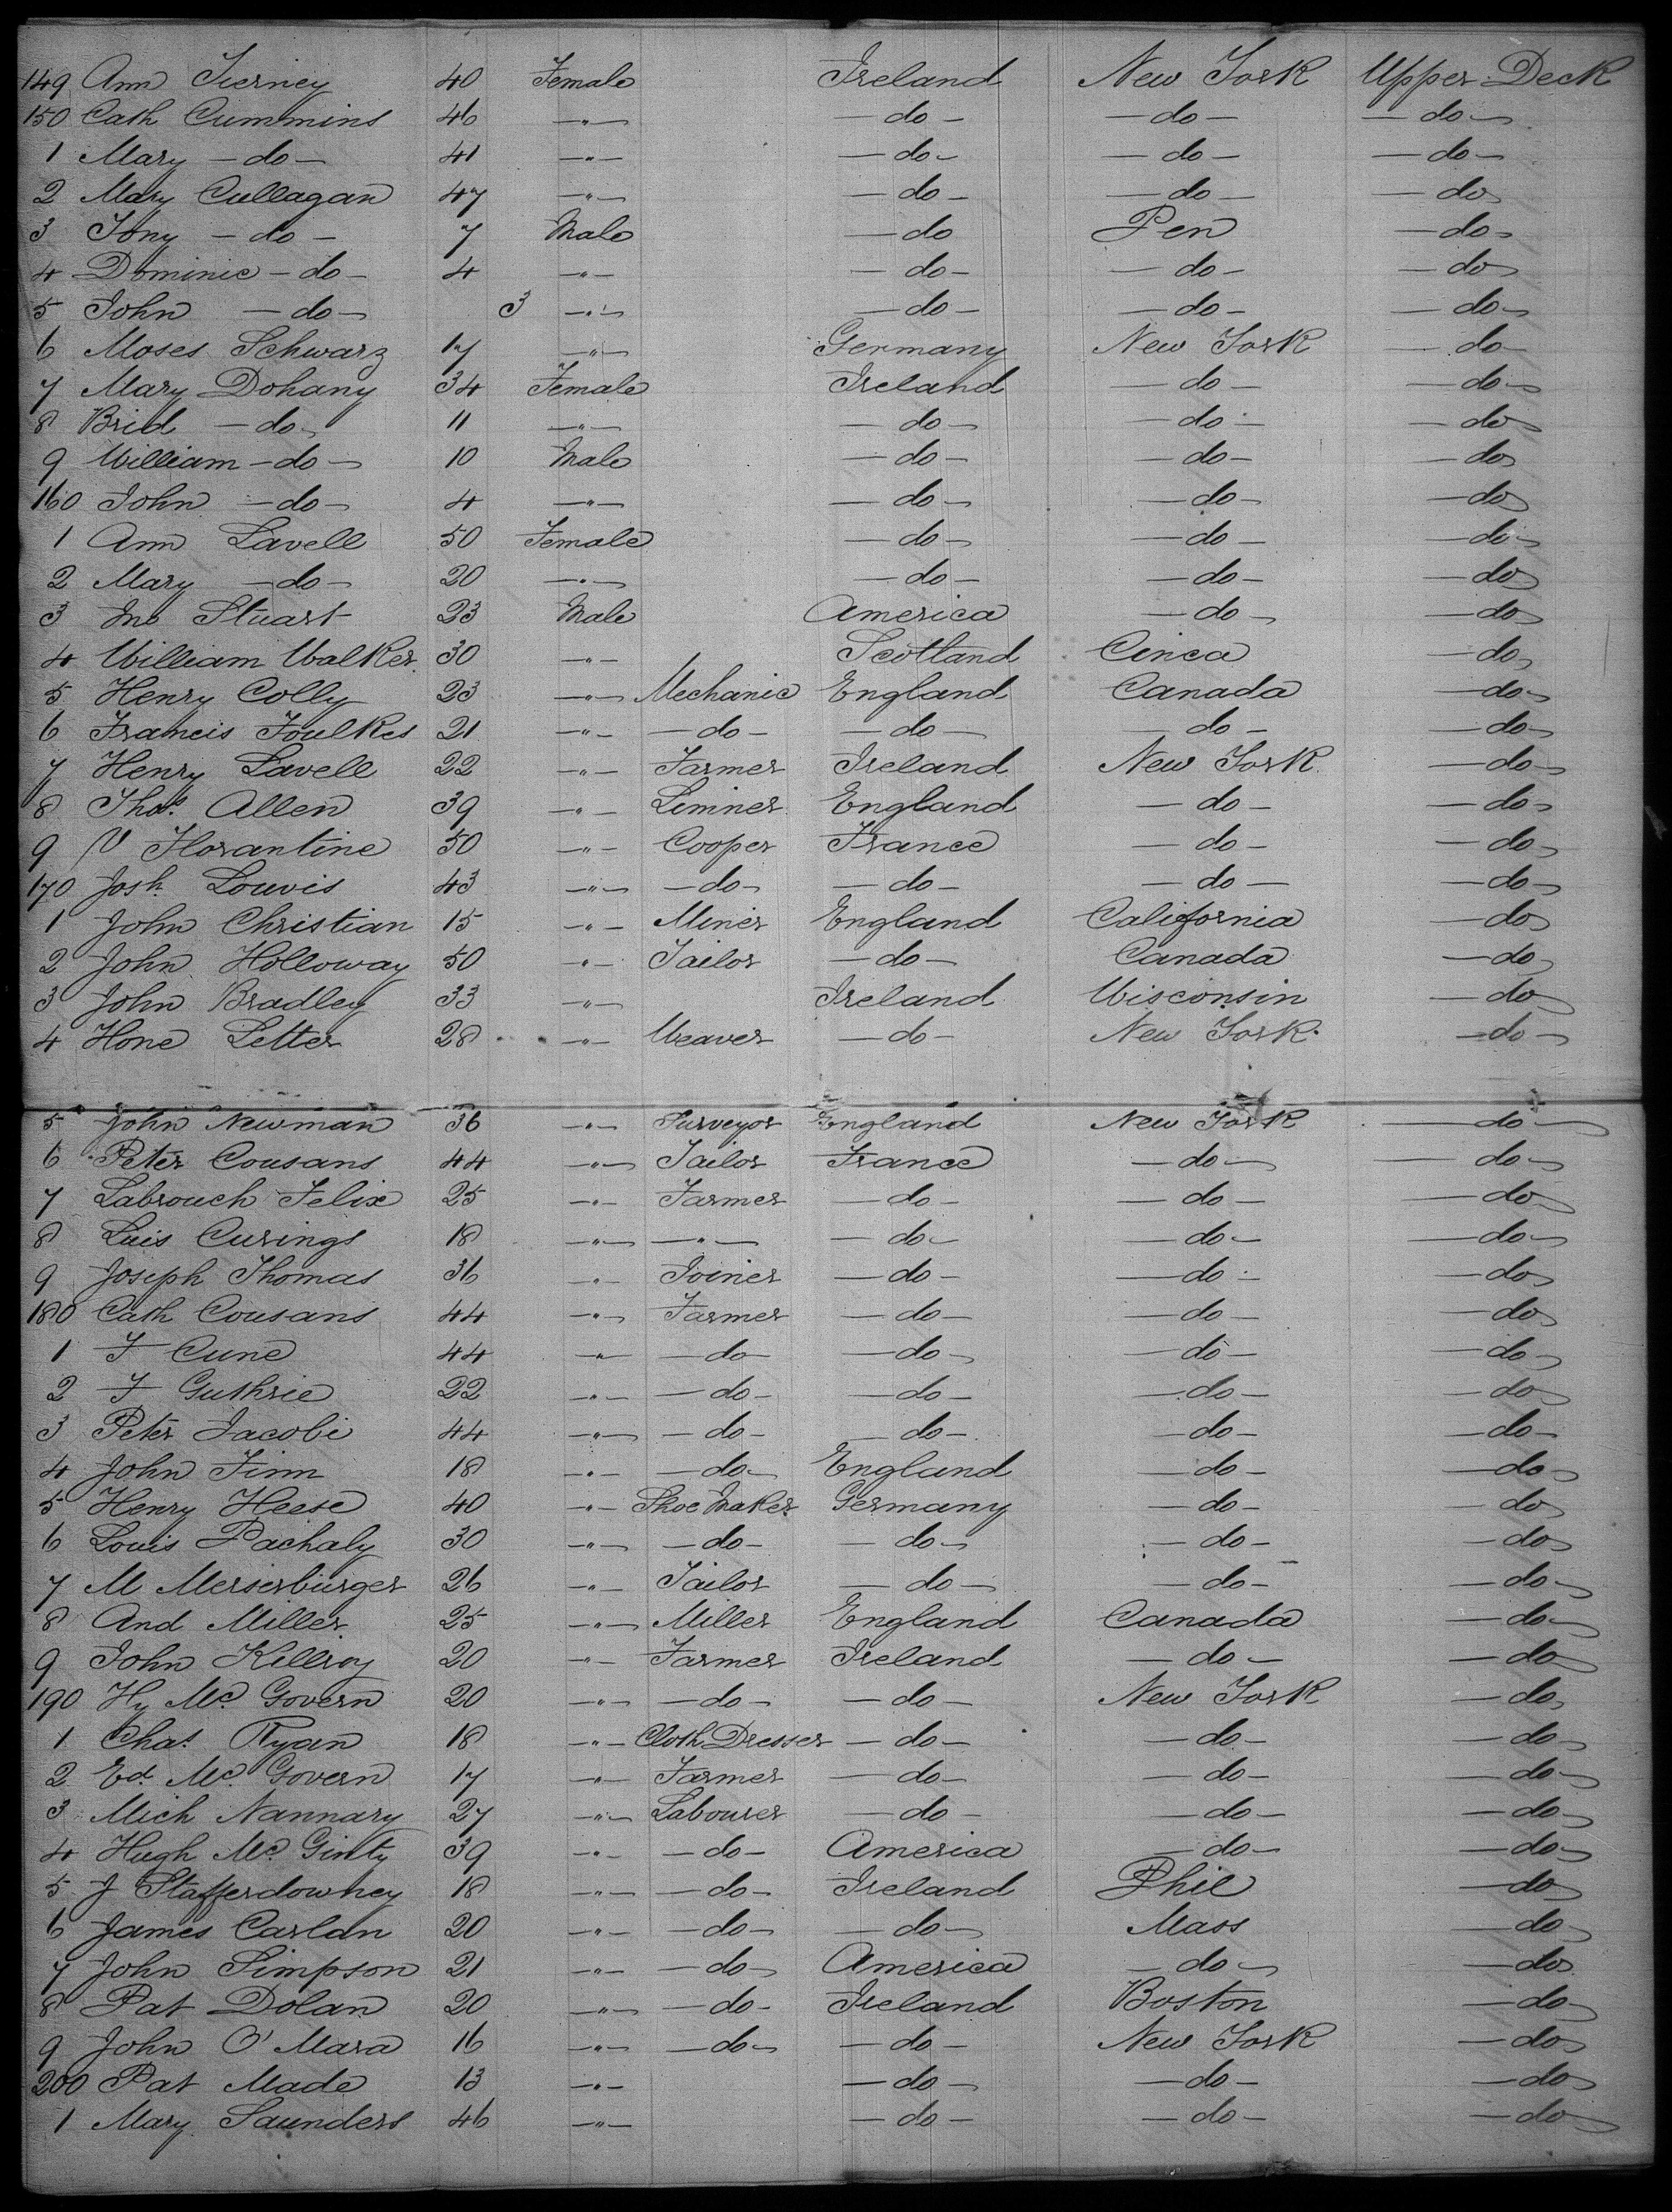 149 Ann Tierney 40 Female Ireland New York Upper Deck
150 Cath Cummins 46 — " — — do — — do — — do —
1 Mary — do — 41 — " — — do — — do — — do —
2 Mary Cullagan 47 — " — — do — — do — — do
3 Tony — do — 7 Male — do Pen — do —
4 Dominic — do — 4 — " — — do — — do — — do
5 John — do — 3 — " — — do — — do — — do —
6 Moses Schwarz 17 — " — Germany New York — do
7 Mary Dohany 34 Female Ireland — do — — do —
8 Brid — do — 11 — " — — do — — do — — do —
9 William — do — 10 Male — do — — do — — do
160 John — do — 4 — " — — do — — do — — do
1 Ann Lavell 50 Female — do — — do — — do —
2 Mary — do — 20 — " — — do — — do — — do
3 Jno Stuart 23 Male America — do — — do
4 William Walker 30 — " — Scotland Cinca — do
5 Henry Colly 23 — " — Mechanic England Canada — do —
6 Francis Foulkes 21 — " — — do — — do — — do — — do —
7 Henry Lavell 22 — " — Farmer Ireland New York — do —
8 Thos. Allen 39 — " — Limner England — do — — do —
9 V Florantine 50 — " — Cooper France — do — — do —
170 Josh. Louvis 43 — " — — do — — do — — do — — do —
1 John Christian 15 — " — Miner England California — do
2 John Holloway 50 — " — Tailor — do — Canada — do
3 John Bradley 33 — " — Ireland Wisconsin — do
4 Hone Letter 28 — " — Weaver — do — New York — do —
5 John Newman 36 — " — Surveyor England New York — do —
6 Peter Cousans 44 — " — Tailor France — do — — do —
7 Labrouch Felix 25 — " — Farmer — do — — do — — do
8 Luis Curings 18 — " — — " — — do — — do — — do —
9 Joseph Thomas 36 — " — Joiner — do — — do — — do
180 Cath Cousans 44 — " — Farmer — do — — do — — do
1 F Cune 44 — " — do — — do — — do — — do —
2 F Guthrie 22 — " — — do — — do — — do — — do
3 Peter Jacobi 44 — " — — do — — do — — do — — do —
4 John Finn 18 — " — — do — England — do — — do
5 Henry Heese 40 — " — Shoe Maker Germany — do — — do
6 Louis Pachaly 30 — " — — do — — do — — do — — do
7 M Merserburger 26 — " — Tailor — do — — do — — do —
8 And Miller 25 — " — Miller England Canada — do —
9 John Kellroy 20 — " — Farmer Ireland — do — — do
190 Hy Mc Govern 20 — " — — do — — do — New York — do
1 Chas. Ryan 18 — " — Cloth Dresser — do — — do — — do
2 Ed. Mc Govern 17 — " — Farmer — do — — do — — do —
3 Mich Nannary 27 — " — Labourer — do — — do — — do
4 Hugh Mc Ginty 39 — " — — do — America — do — — do
5 J Stafferdowney 18 — " — — do — Ireland Phil — do
6 James Carlan 20 — " — — do — — do — Mass — do
7 John Simpson 21 — " — — do — America — do — — do
8 Pat Dolan 20 — " — — do — Ireland Boston — do
9 John O' Mara 16 — " — — do — — do — New York — do
200 Pat Made 13 — " — — do — — do — — do
1 Mary Saunders 46 — " — — do — — do — — do